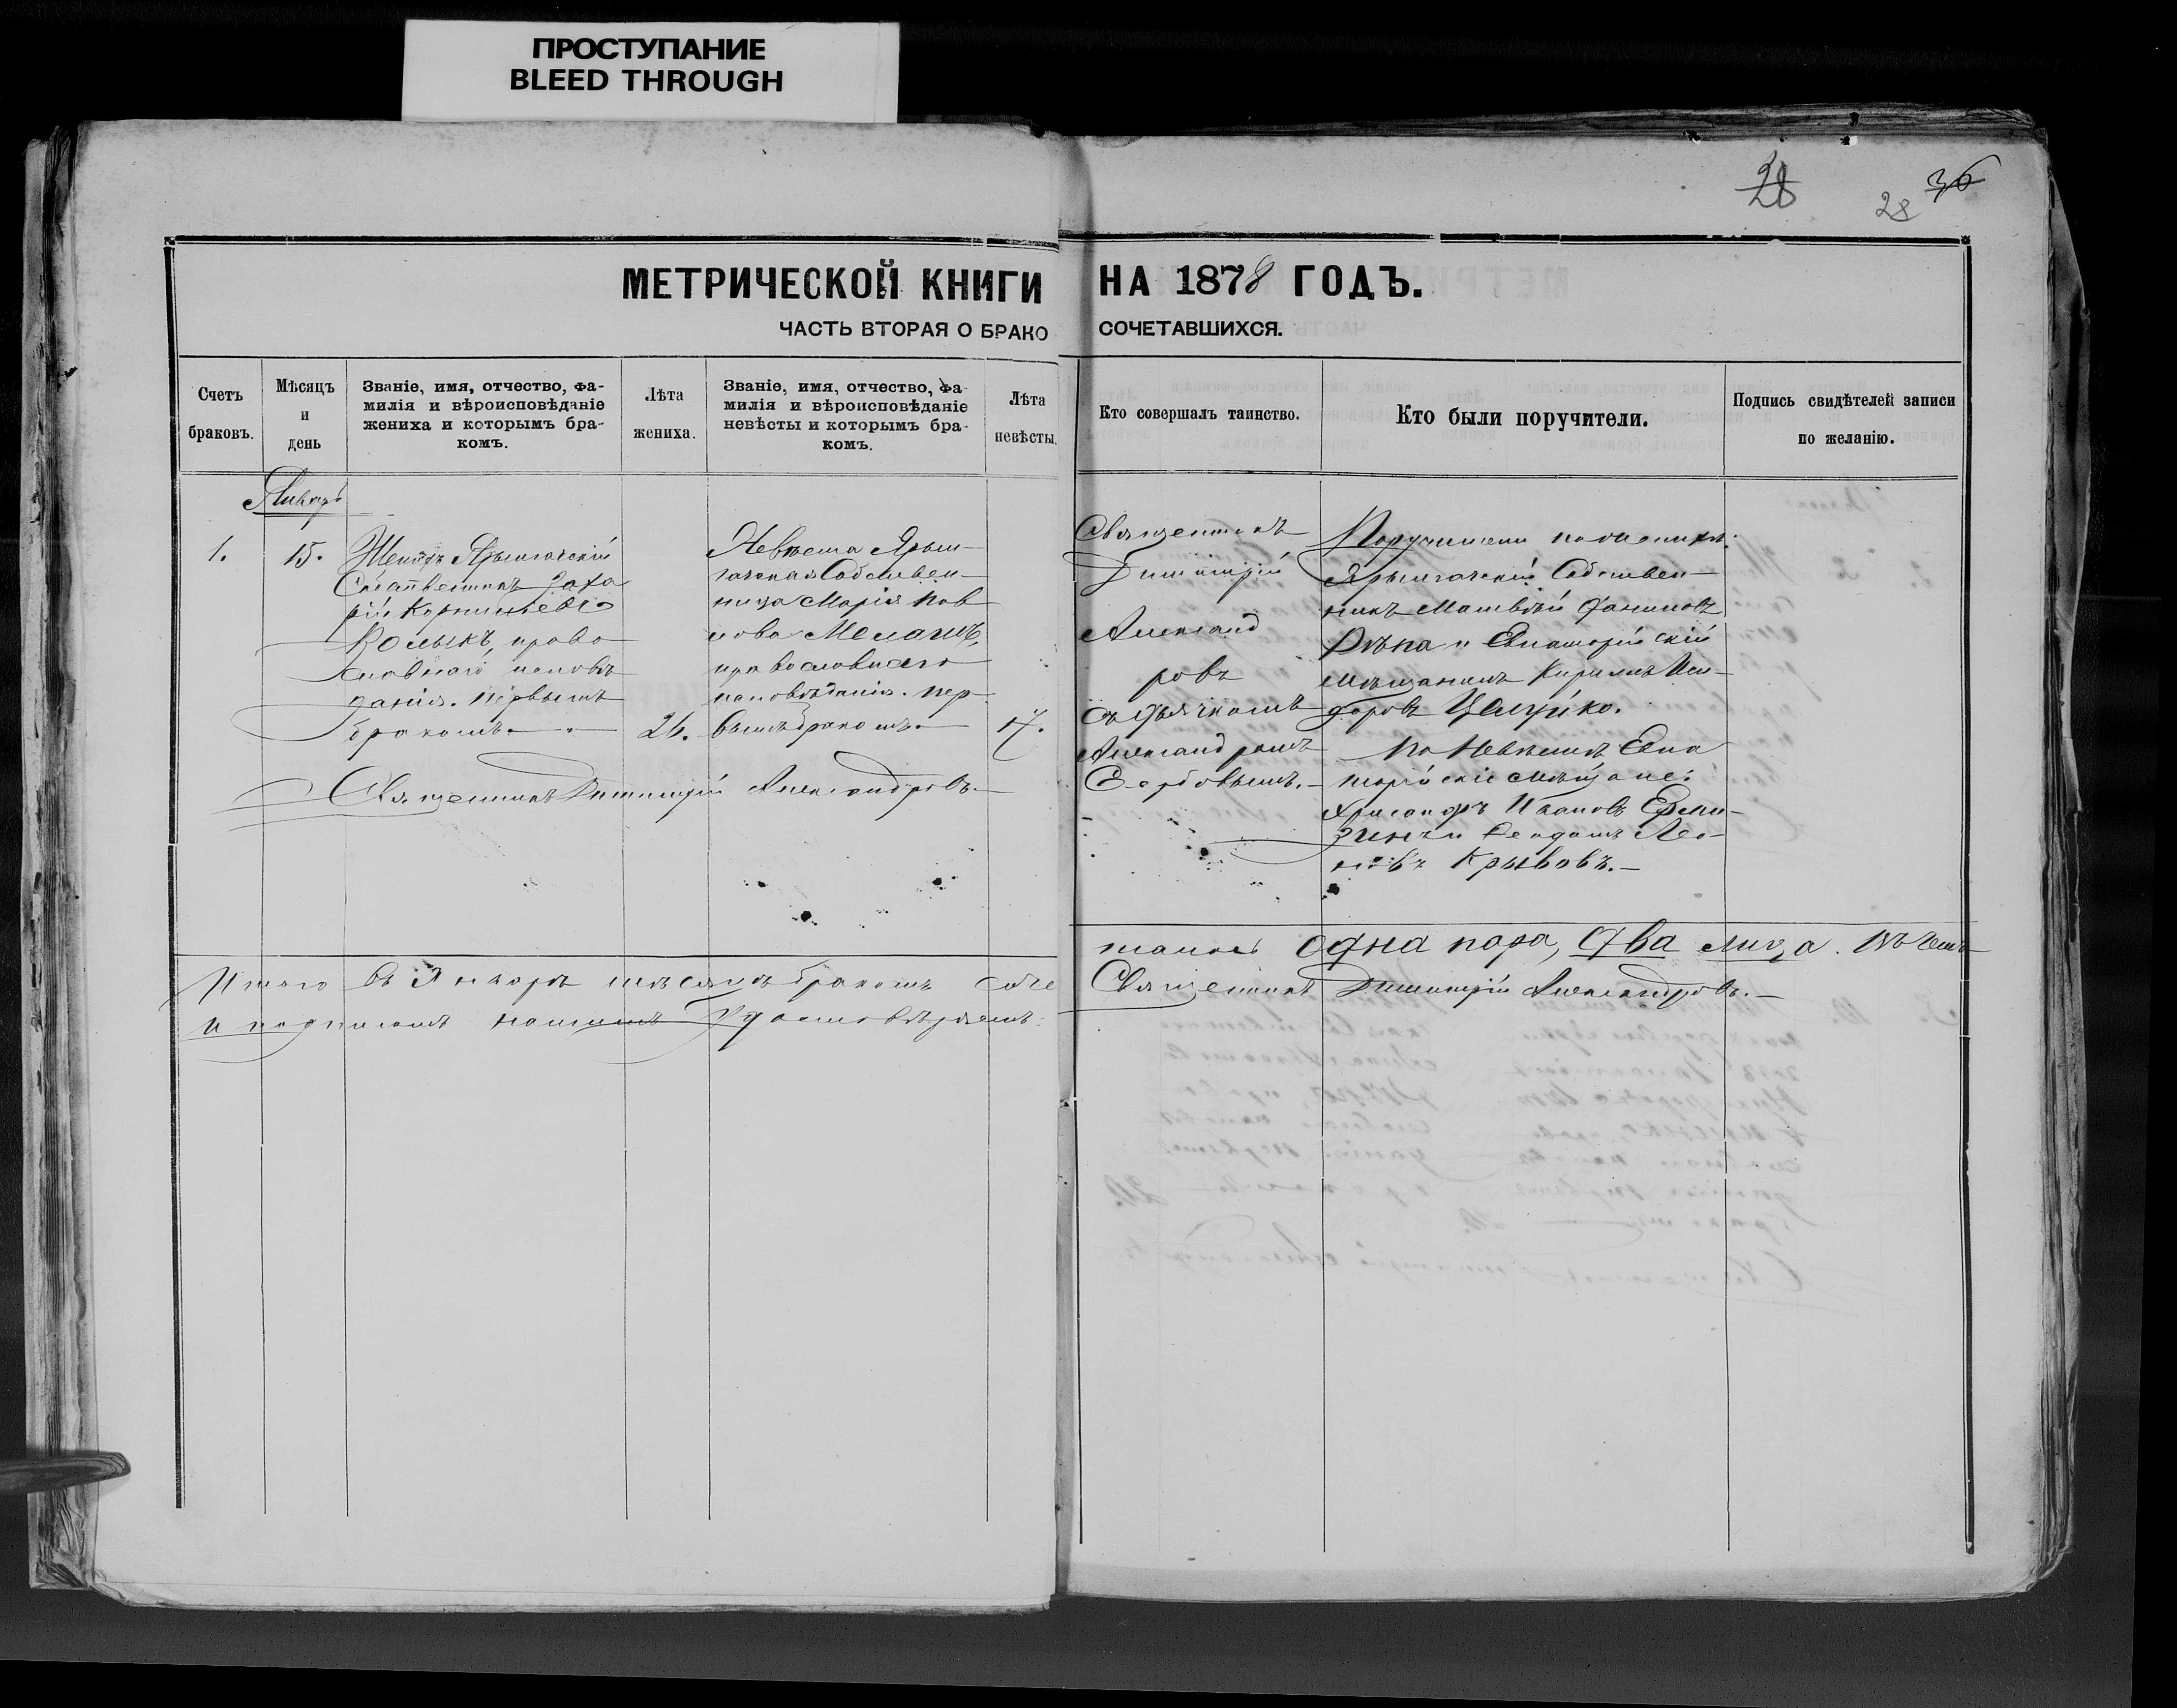 ПРОСТУПАНИЕ
BLEED THROUGH
28
28
36
МЕТРИЧЕСКОЙ КНИГИ НА 1878 ГОДЪ.
ЧАСТЬ ВТОРАЯ О БРАКО СОЧЕТАВШИХСЯ.
Счетъ
браковъ.
Мѣсяцъ
и
день
Званіе, имя, отчество, фа-
милія и вѣроисповѣданіе
жениха и которымъ бра-
комъ.
Лѣта
жениха.
Званіе, имя, отчество, фа-
милія и вѣроисповѣданіе
невѣсты и которымъ бра-
комъ.
Лѣта
невѣсты.
Кто совершалъ таинство.
Кто были поручители.
Подпись свидѣтелей записи
по желанію.
Январь
1.
15.
Женихъ Ярылгачскій
Собственникъ Заха
рій Корнильевъ
Колыкъ, право
славнаго исповѣ
данія. первымъ
бракомъ.
26.
Невѣста Ярыл-
гачская Собствен-
ница Марія Пав
лова
православнаго
исповѣданія. пер
вымъ бракомъ.
17.
Священникъ Димитрій Александровъ.
Священникъ
Димитрій
Александ
ровъ
съ дьячкомъ
Александромъ
Поручители по женихѣ:
Ярылгачскій Собствен-
никъ Матвѣй
Рѣпа и Евпаторійскій
мѣщанинъ Кирилъ Иси-
доровъ
По Невѣстѣ Евпа
торійскіе мѣщане:
Хрисанфъ Ивановъ
и Ѳеодоръ Лео-
новъ Крывовъ.
Итого въ Январѣ мѣсяцѣ бракомъ соче
талось одна пара, два лица. Въ чемъ
и подписомъ нашимъ Удостовѣряемъ:
Священникъ Димитрій Александровъ.